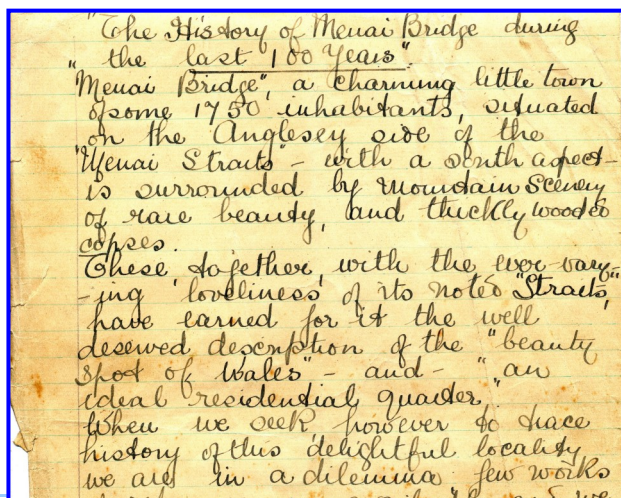 "The History of Menai Bridge during
"the last 100 Years".
"Menai Bridge", a charming little town
of some 1750 inhabitants, situated
on the Anglesey side of the
"Menai Straits" - with a south aspect -
is surrounded by mountain scenery
of rare beauty, and thickly wooded
copses.
These, together, with the ever-vary-
-ing loveliness of its noted "Straits",
have earned for it the well
deserved description of the "beauty
spot of Wales" - and - "an
ideal residential quarter".
When we seek however to trace
history of this delightful locality,
we are in a dilemma few works